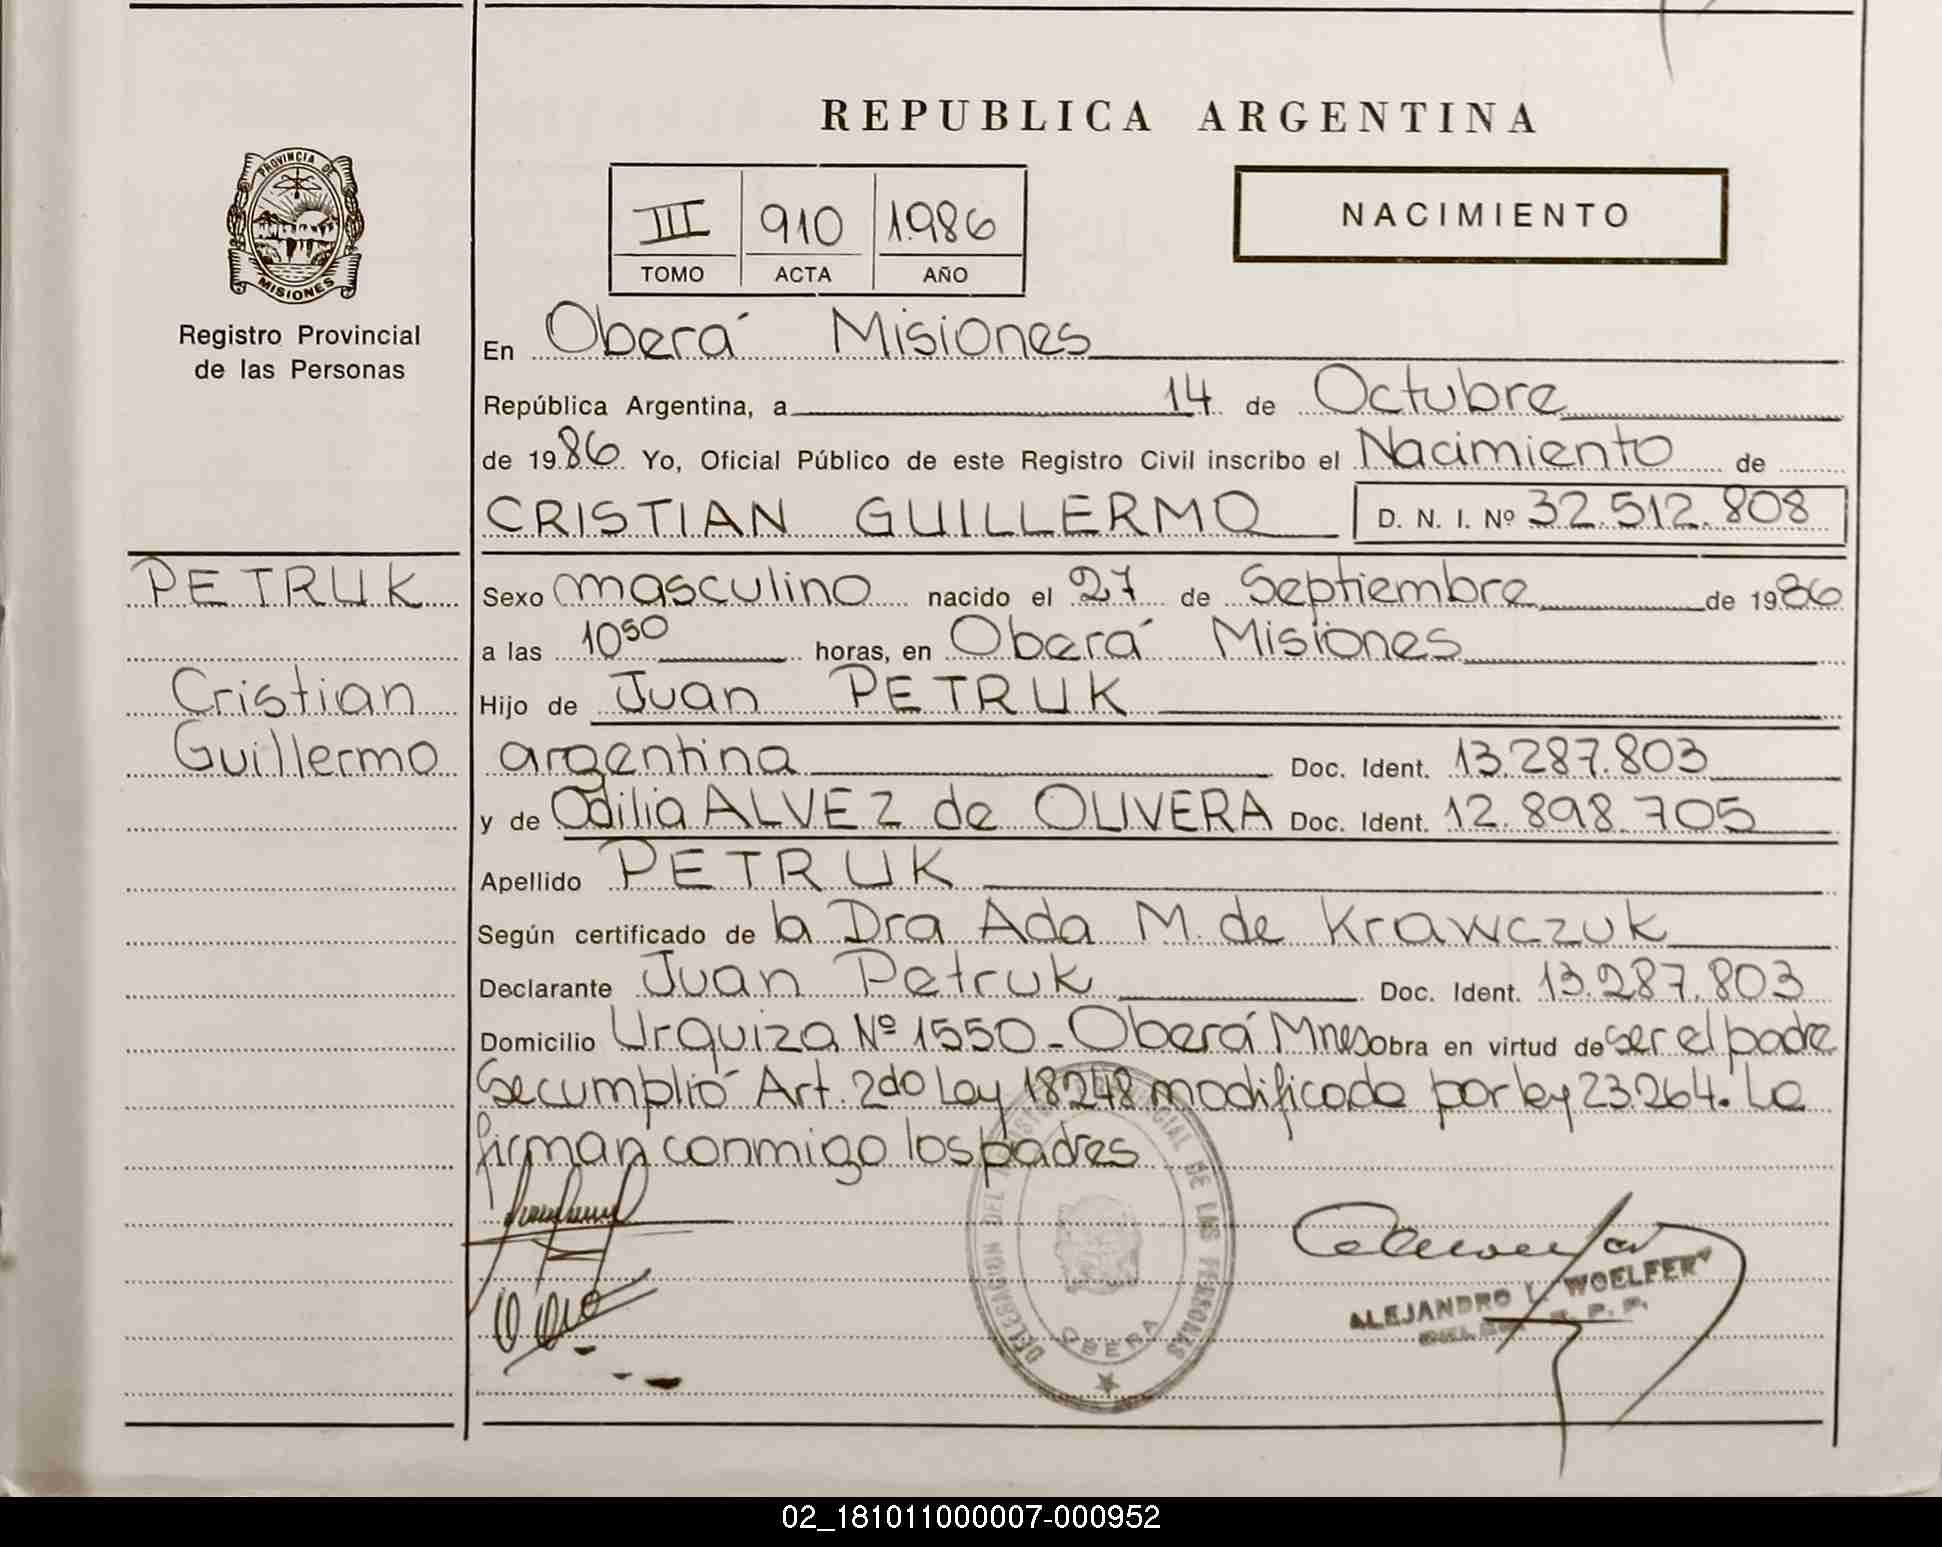 REPUBLICA ARGENTINA
PROVINCIA DE
MISIONES
Registro Provincial
de las Personas
III 910 1986
TOMO ACTA AÑO
NACIMIENTO
En Oberá Misiones
República Argentina, a 14 de Octubre
de 1986 Yo, Oficial Público de este Registro Civil inscribo el Nacimiento de
CRISTIAN GUILLERMO D. N. I. Nº 32.512.808
PETRUK
Cristian
Guillermo
Sexo masculino nacido el 27 de Septiembre de 1986
a las 10 50 horas, en Oberá Misiones
Hijo de Juan PETRUK
argentina Doc. Ident. 13.287.803
y de Odilia ALVEZ de OLIVERA Doc. Ident. 12.898.705
Apellido PETRUK
Según certificado de la Dra Ada M. de Krawczuk
Declarante Juan Petruk Doc. Ident. 13.287.803
Domicilio Urquiza Nº 1550 - Oberá Mnes obra en virtud de ser el padre
Se cumplió Art. 2do Ley 18248 modificado por ley 23.264. La
firman conmigo los padres
DELEGACION DEL DE LAS PERSONAS
OBERA
ALEJANDRO L. WOELFER
02_181011000007-000952